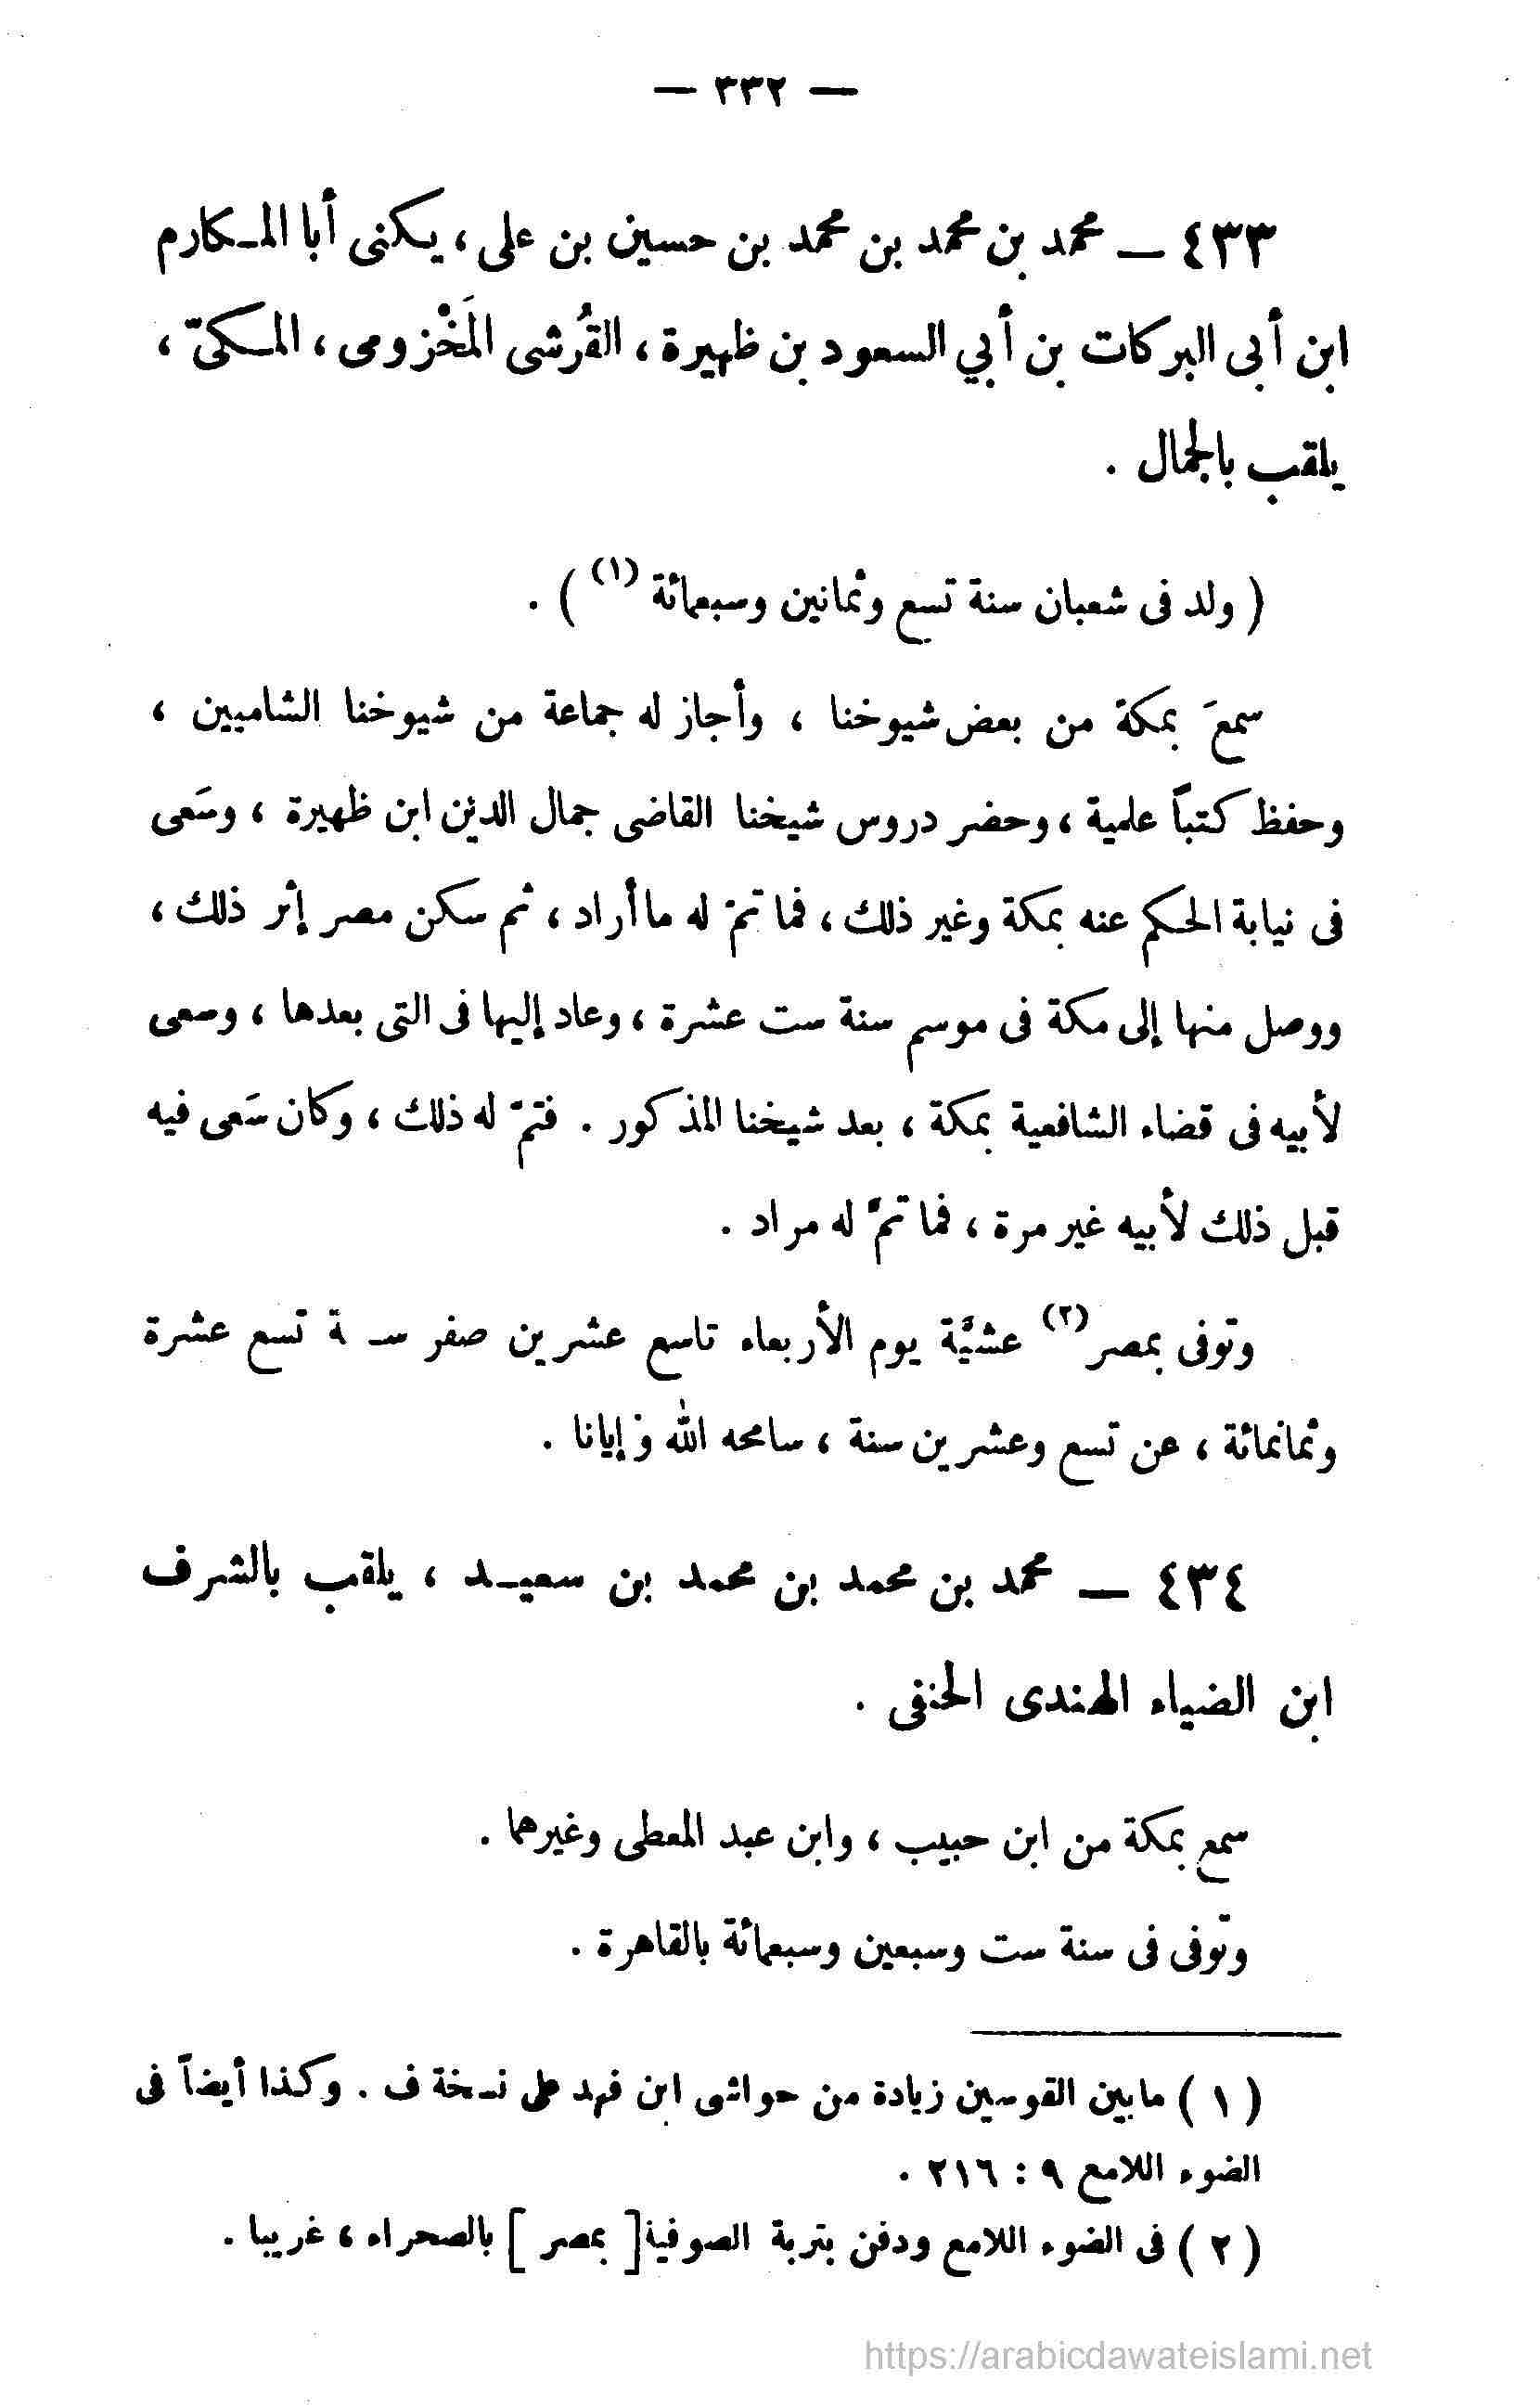 — ٣٣٢ —
٤٣٣ — محمد بن محمد بن محمد بن حسين بن على ، يكنى أبا المكارم
ابن أبى البركات بن أبي السعود بن ظهيرة ، القُرشى المَخْزومى ، المكىّ ،
يلقب بالجمال .
( ولد فى شعبان سنة تسع وثمانين وسبعمائة (١) ) .
سمعَ بمكة من بعض شيوخنا ، وأجاز له جماعة من شيوخنا الشاميين ،
وحفظ كتباً علمية ، وحضر دروس شيخنا القاضى جمال الدين ابن ظهيرة ، وسَعى
فى نيابة الحكم عنه بمكة وغير ذلك ، فما تمّ له ما أراد ، ثم سكن مصر إثر ذلك ،
ووصل منها إلى مكة فى موسم سنة ست عشرة ، وعاد إليها فى التى بعدها ، وسعى
لأبيه فى قضاء الشافعية بمكة ، بعد شيخنا المذكور . فتمّ له ذلك ، وكان سَعى فيه
قبل ذلك لأبيه غير مرة ، فما تمّ له مراد .
وتوفى بمصر (٢) عشيَّة يوم الأربعاء تاسع عشرين صفر سـ ة تسع عشرة
وثمانمائة ، عن تسع وعشرين سنة ، سامحه الله وإيانا .
٤٣٤ — محمد بن محمد بن محمد بن سعيـد ، يلقب بالشرف
ابن الضياء الهندى الحنفى .
سمع بمكة من ابن حبيب ، وابن عبد المعطى وغيرهما .
وتوفى فى سنة ست وسبعين وسبعمائة بالقاهرة .
( ١ ) مابين القوسين زيادة من حواشى ابن فهد على نسخة ف . وكذا أيضاً فى
الضوء اللامع ٩ : ٢١٦ .
( ٢ ) فى الضوء اللامع ودفن بتربة الصوفية [ بمصر ] بالصحراء ، غريبا .
https://arabicdawateislami.net